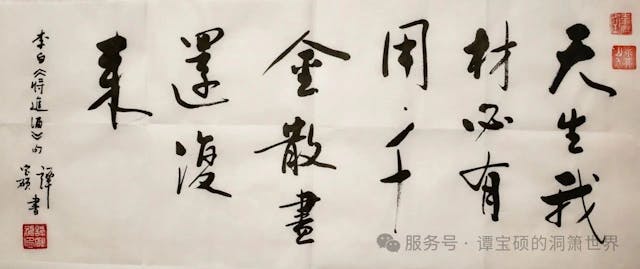 天生我
材必有
用、千
金散盡
還復
来
李白《将進酒》句
譚宝碩書
服务号 · 谭宝硕的洞箫世界